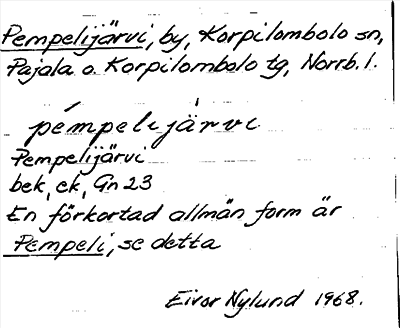 Pempelijärvi, by, Korpilombolo sn,
Pajala o. Korpilombolo tg, Norrb. l.
pémpelijä̀rvi
Pempelijärvi
bek, ek, Gn 23
En förkortad allmän form är
Pempeli, se detta
Eivor Nylund 1968.